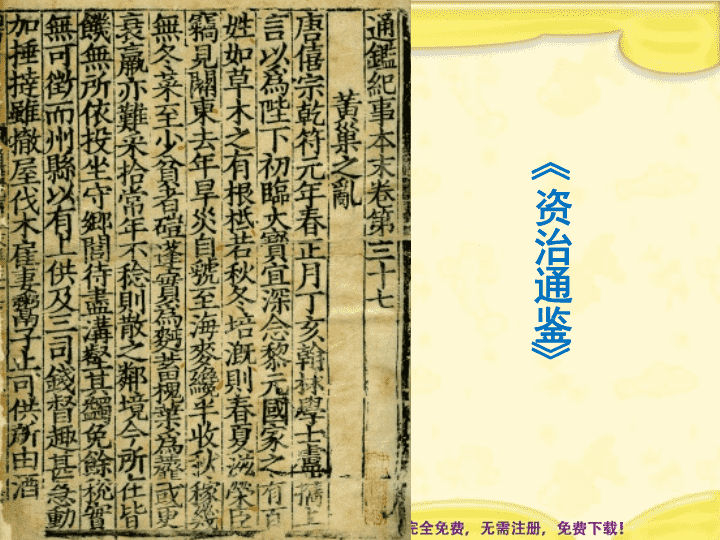 通鑑紀事本末卷第三十七
黃巢之亂
唐僖宗乾符元年春正月丁亥翰林學士盧攜上
言以為陛下初臨大寶宜深念黎元國家之有百
姓如草木之有根柢若秋冬培溉則春夏滋榮臣
竊見關東去年旱災自虢至海麥纔半收秋稼幾
無冬菜至少貧者磑蓬實為麪蓄槐葉為虀或更
衰羸亦難采拾常年不稔則散之鄰境今所在皆
饑無所依投坐守鄉閭待盡溝壑其蠲免餘稅實
無可徵而州縣以有上供及三司錢督趣甚急動
加捶撻雖撤屋伐木雇妻鬻子止可供所由酒
《资治通鉴》
完全免费，无需注册，免费下载！